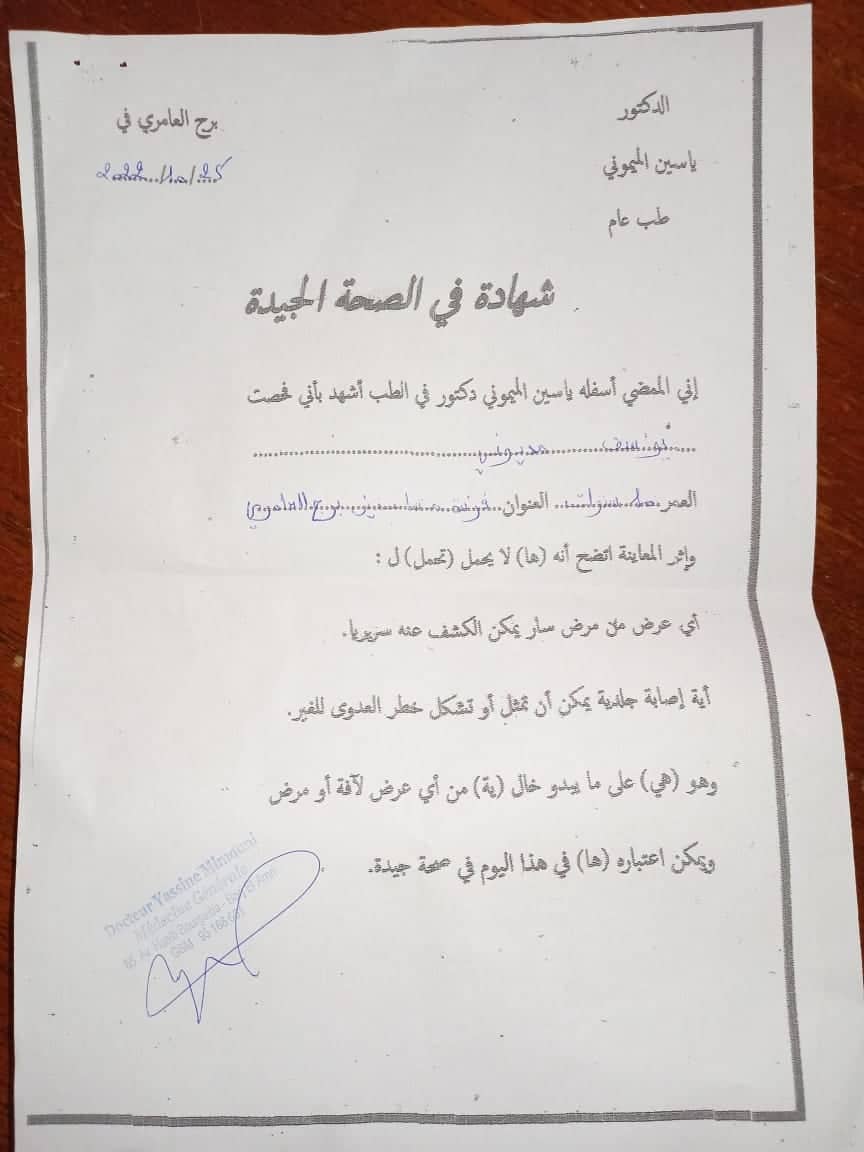 الدكتور
برج العامري في
ياسين الميموني
طب عام
شهادة في الصحة الجيدة
إني الممضي أسفله ياسين الميموني دكتور في الطب أشهد بأني فحصت
يوسف مديوني
العمر سنوات العنوان برج العامري
وإثر المعاينة اتضح أنه (ها) لا يحمل (تحمل) ل :
أي عرض من مرض سار يمكن الكشف عنه سريريا.
أية إصابة جلدية يمكن أن تمثل أو تشكل خطر العدوى للغير.
وهو (هي) على ما يبدو خال (ية) من أي عرض لآفة أو مرض
ويمكن اعتباره (ها) في هذا اليوم في صحة جيدة.
Docteur Yassine Mimouni
Médecine Générale
GSM